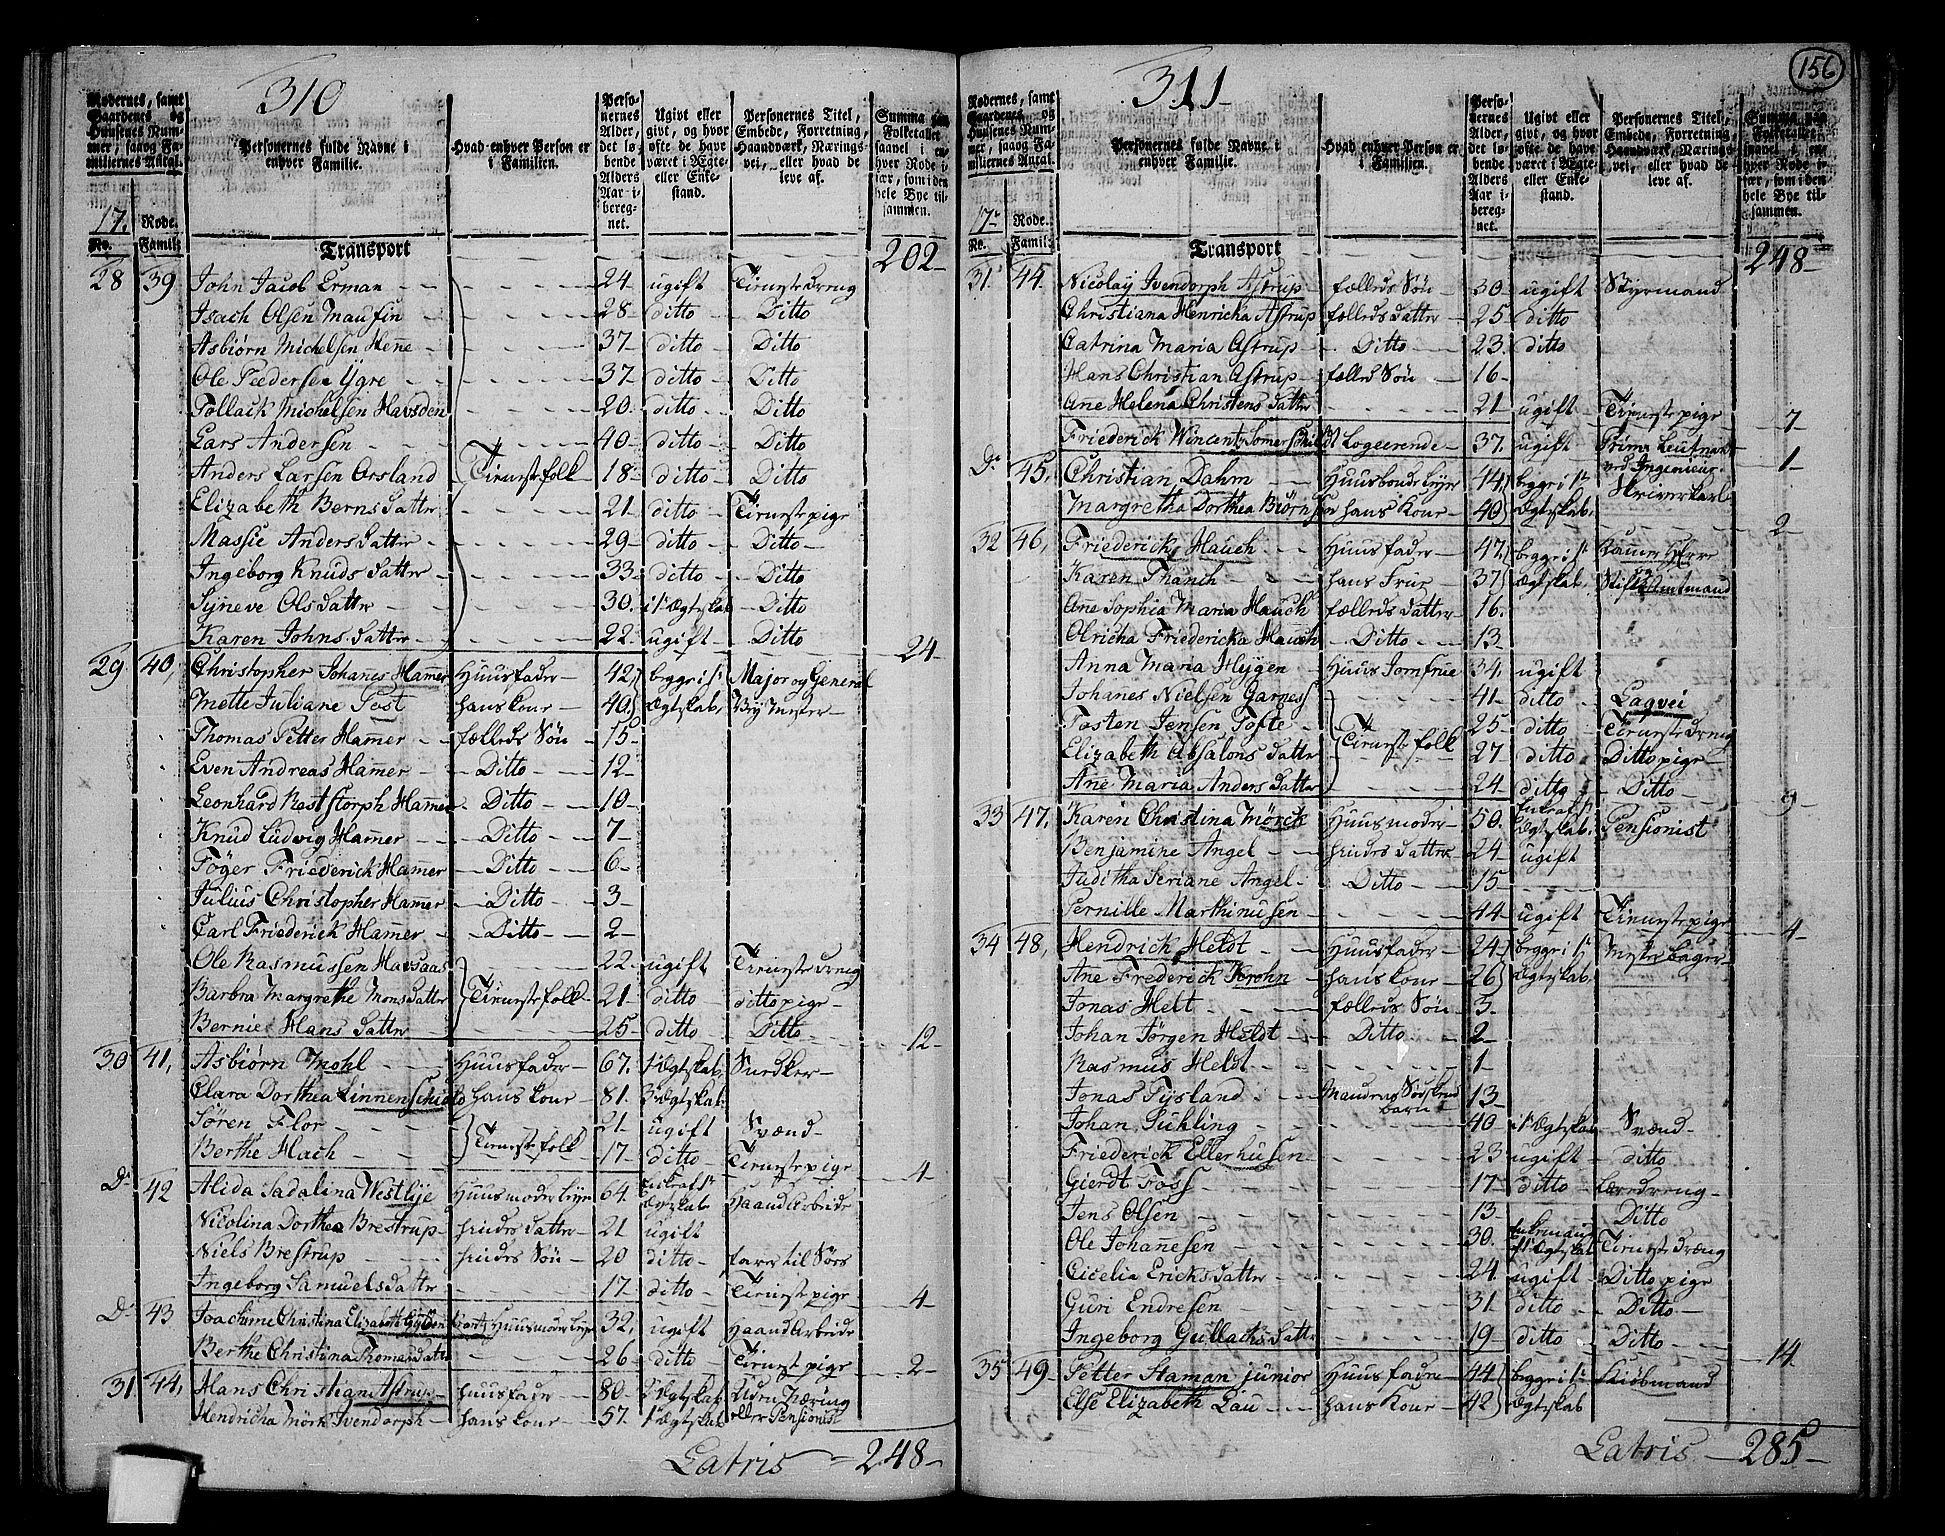 310
Rodernes, samt Gaardenes og Huusenes Nummer, saaog Familiernes Antal.
Personernes fulde Navne i enhver Familie.
Hvad enhver Person er i Familien.
Personernes Alder, det løbende Alders Aar iberegnet.
Ugivt eller givt, og hvor ofte de have været i Ægte- eller Enkestand.
Personernes Titel, Embede, Forretning, Haandværk, Næringsvei, eller hvad de leve af.
Summa paa Folketallet saavel i enhver Rode især, som i den hele Bye tilsammen.
17. Rode.
No. Famil:
Transport 202
28 39 John Jacob Erman 24 ugift Tienestedreng
Isach Olsen Mausin 28 ditto Ditto
Asbiørn Michelsen Hene 37 ditto Ditto
Ole Pedersen Ygre 37 ditto Ditto
Tollack Michelsen Havsden 20 ditto Ditto
Lars Andersen 40 ditto Ditto
Anders Larsen Orsland Tienestefolk 18 ditto Ditto
Elizabeth Bernsdatter 21 ditto Tienestepige
Massie Andersdatter 29 ditto Ditto
Ingeborg Knudsdatter 33 ditto Ditto
Syneve Olsdatter 30 i 1t Ægtskab Ditto
Karen Johnsdatter 22 ugift Ditto 24
29 40 Christopher Johanes Hamer Huusfader 42 begge i 1t Major og General
Mette Juliane Post hans kone 40 Ægtskab Vey Mester
Thomas Petter Hamer fælleds Søn 15
Even Andreas Hamer Ditto 12
Leonhard Raststorph Hamer Ditto 10
Knud Ludvig Hamer Ditto 7
Føger Friederick Hamer Ditto 6
Julius Christopher Hamer Ditto 3
Carl Friederick Hamer Ditto 2
Ole Rasmussen Havsaas 22 ugift Tienestedreng
Barbra Margrethe Monsdatter Tienestefolk 21 ditto ditto pige
Bernie Hansdatter 25 ditto Ditto 12
30 41 Asbiørn Mohl Huusfader 67 1t Ægtskab Snedker
Clara Dorthea Linnenschiold hans kone 81 3 Ægtskab
Søren Flor 21 ugift Svænd
Berthe Hach Tienestefolk 17 ditto Tienestepige 4
Do 42 Alida Sadalina Westlye Huusmoder 64 Enke af 1t Ægtskab Haandarbeide
Nicolina Dorthea Brestrup hendes datter 21 ugift
Niels Brestrup hendes Søn 20 ditto farer til Søes
Ingeborg Samuelsdatter 17 ditto Tienestepige 4
Do 43 Joachime Christina Elizabeth Gyldenkrantz Huusmoder 32 ugift Haandarbeide
Berthe Christina Thomasdatter 26 ditto Tienestepige 2
31 44 Hans Christian Astrup huusfader 80 2 Ægtskab Uden Næring
Hendricha Mörk Ivendorph hans kone 57 1t Ægtskab eller Pensionist
Latris 248
156
311
Rodernes, samt Gaardenes og Huusenes Nummer, saaog Familiernes Antal.
Personernes fulde Navne i enhver Familie.
Hvad enhver Person er i Familien.
Personernes Alder, det løbende Alders Aar iberegnet.
Ugivt eller givt, og hvor ofte de have været i Ægte- eller Enkestand.
Personernes Titel, Embede, Forretning, Haandværk, Næringsvei, eller hvad de leve af.
Summa paa Folketallet saavel i enhver Rode især, som i den hele Bye tilsammen.
17. Rode.
No. Famil:
Transport 248
31 44 Nicolay Ivendorph Astrup fælleds Søn 30 ugift Styrmand
Christiana Henricha Astrup fælleds datter 25 ditto
Catrina Maria Astrup Ditto 23 ditto
Hans Christian Astrup fælleds Søn 16
Ane Helena Christensdatter 21 ugift Tienestepige 7
Friederick Wincent Somerschildt Logeerende 37 ugift Prime Leutnant ved Ingenieur 1
Do 45 Christian Dahm Huusbonde 44 begge i 1t Skriverkarl
Margretha Dorthea Biørnsen hans Kone 40 Ægtskab 2
32 46 Friederick Hauch Huusfader 47 begge i 1t Kammerherre
Karen Thanch hans Frue 37 Ægtskab Stiftsamtmand
Ane Sophia Maria Hauch fælleds datter 16
Olricha Friedericka Hauch Ditto 13
Anna Maria Heygen Huus Jomfrue 34 ugift
Johanes Nielsen Garness 41 ditto Laqvei
Tosten Jensen Tofte 25 ditto Tienestedreng
Elizabeth Absalonsdatter Tienestefolk 27 ditto Ditto pige
Ane Maria Andersdatter 24 ditto Ditto 9
33 47 Karen Christina Mörck Huusmoder 50 Enke af 1t Ægtskab Pensionist
Benjamine Angel hendes datter 24 ugift
Juditha Seriane Angel Ditto 15
Pernille Marthinusen 44 ugift Tienestepige 4
34 48 Hendrick Heldt Huusfader 24 begge i 1t Mester bager
Ane Frederick Krohn hans kone 26 Ægtskab
Jonas Helt fælleds Søn 3
Johan Jørgen Heldt Ditto 2
Rasmus Heldt 1
Jonas Tysland Mandens Sødskendbarn 13
Johan Suhling 40 i 1t Ægtskab Svænd
Friederick Ellerhusen 23 ugift ditto
Gierdt Foss 17 ditto Læredreng
Jens Olsen 13 Ditto
Ole Johannesen 30 Enkemand af 1t Ægtskab Tienestedræng
Cicelia Ericksdatter 24 ugift Ditto pige
Guri Endresen 31 ditto Ditto
Ingeborg Gullachsdatter 19 ditto Ditto 14
35 49 Petter Haman junior Huusfader 44 begge i 1t Kiøbmand
Else Elizabeth Lau hans Kone 42 Ægtskab
Latris 285